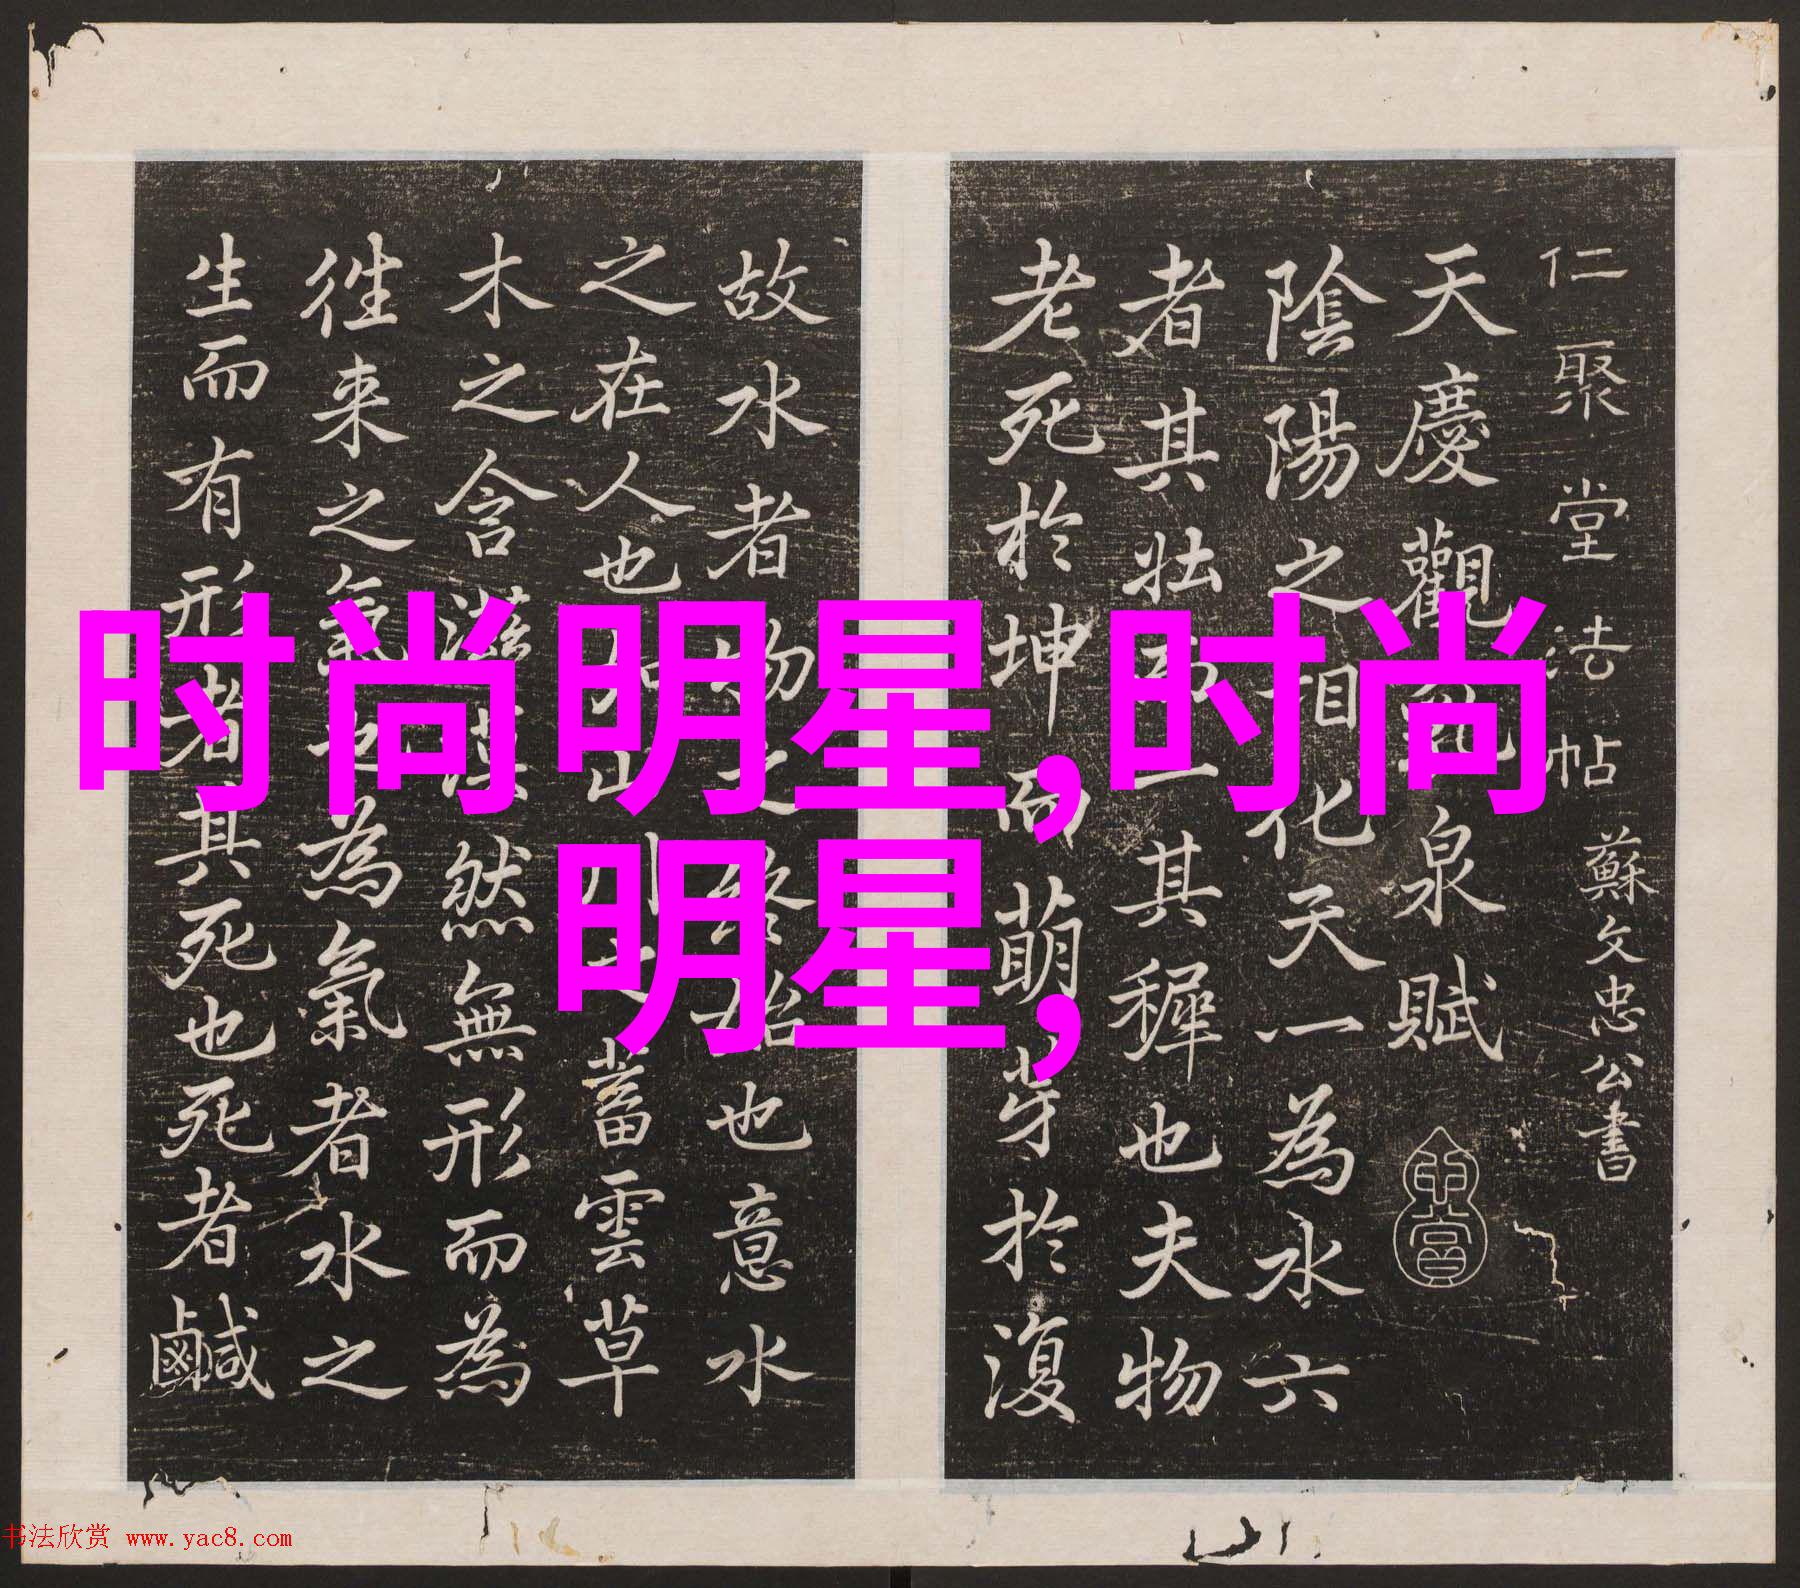 仁聚堂法帖 蘇文忠公書
天慶觀乳泉賦
陰陽之相化天一為水六
者其壯而一其穉也夫物
老死於坤而萌芽於復
故水者物之終始也意水
之在人也如山川之蓄雲草
木之含滋漠然無形而為
徃来之氣也為氣者水之
生而有形者其死也死者鹹
时尚明星,时尚
明星,
书法欣赏 www.yac8.com